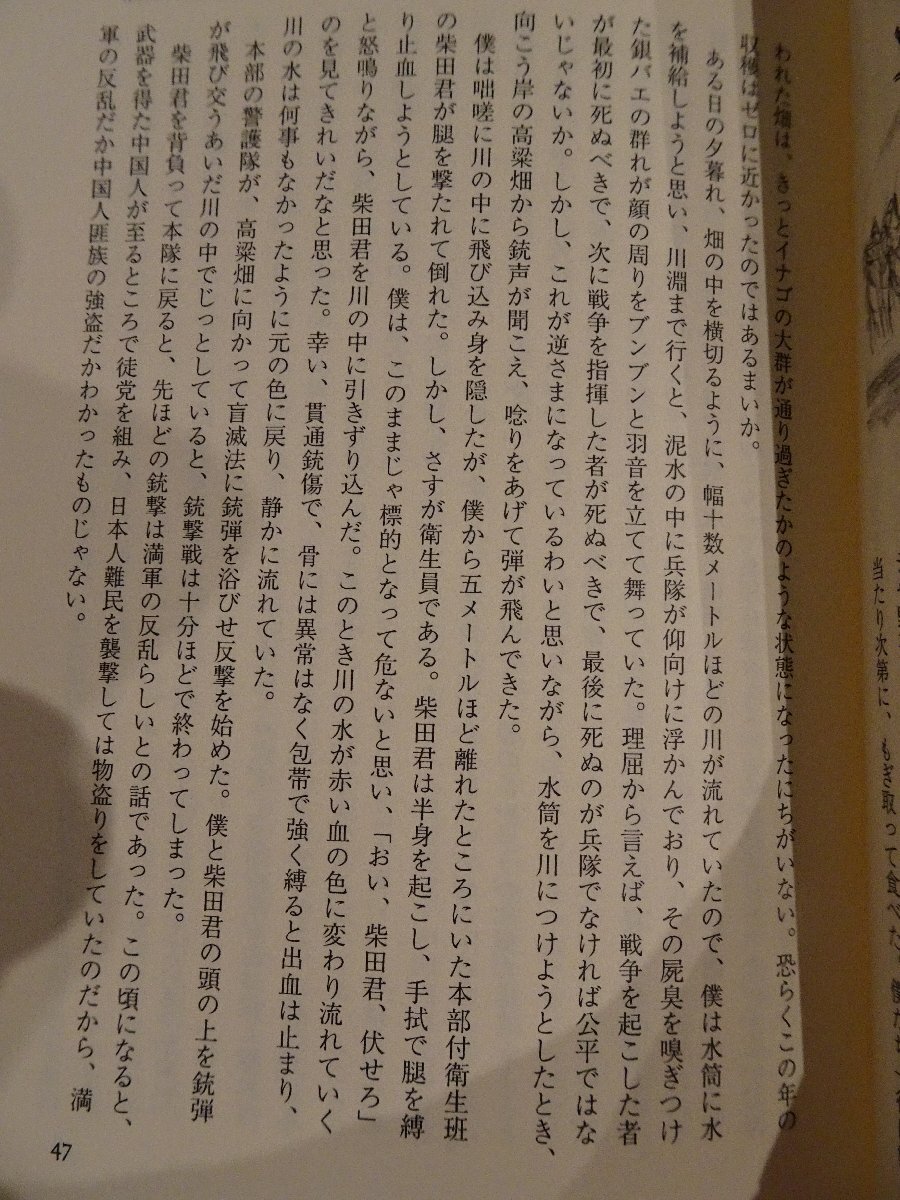 われた畑は、きっとイナゴの大群が通り過ぎたかのような状態になったにちがいない。恐らくこの年の
収穫はゼロに近かったのではあるまいか。
ある日の夕暮れ、畑の中を横切るように、幅十数メートルほどの川が流れていたので、僕は水筒に水
を補給しようと思い、川淵まで行くと、泥水の中に兵隊が仰向けに浮かんでおり、その屍臭を嗅ぎつけ
た銀バエの群れが顔の周りをブンブンと羽音を立てて舞っていた。理屈から言えば、戦争を起こした者
が最初に死ぬべきで、次に戦争を指揮した者が死ぬべきで、最後に死ぬのが兵隊でなければ公平ではな
いじゃないか。しかし、これが逆さまになっているわいと思いながら、水筒を川につけようとしたとき、
向こう岸の高粱畑から銃声が聞こえ、唸りをあげて弾が飛んできた。
僕は咄嗟に川の中に飛び込み身を隠したが、僕から五メートルほど離れたところにいた本部付衛生班
の柴田君が腿を撃たれて倒れた。しかし、さすが衛生員である。柴田君は半身を起こし、手拭で腿を縛
り止血しようとしている。僕は、このままじゃ標的となって危ないと思い、「おい、柴田君、伏せろ」
と怒鳴りながら、柴田君を川の中に引きずり込んだ。このとき川の水が赤い血の色に変わり流れていく
のを見てきれいだなと思った。幸い、貫通銃傷で、骨には異常はなく包帯で強く縛ると出血は止まり、
川の水は何事もなかったように元の色に戻り、静かに流れていた。
本部の警護隊が、高粱畑に向かって盲滅法に銃弾を浴びせ反撃を始めた。僕と柴田君の頭の上を銃弾
が飛び交うあいだ川の中でじっとしていると、銃撃戦は十分ほどで終わってしまった。
柴田君を背負って本隊に戻ると、先ほどの銃撃は満軍の反乱らしいとの話であった。この頃になると、
武器を得た中国人が至るところで徒党を組み、日本人難民を襲撃しては物盗りをしていたのだから、満
軍の反乱だか中国人匪族の強盗だかわかったものじゃない。
47
当たり次第に、もぎ取って食べた。